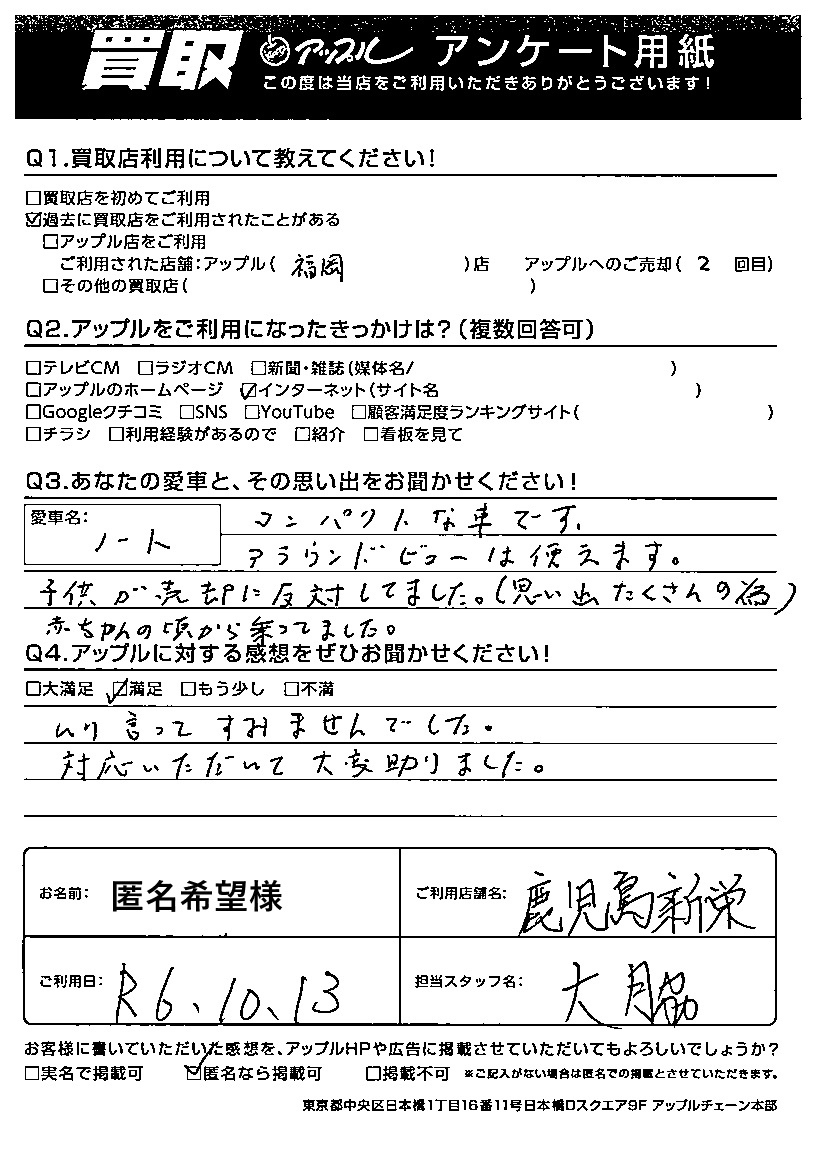 買取 アップル アンケート用紙
この度は当店をご利用いただきありがとうございます!
Q1.買取店利用について教えてください!
□買取店を初めてご利用
☑過去に買取店をご利用されたことがある
□アップル店をご利用
ご利用された店舗:アップル( 福岡 )店 アップルへのご売却( 2 回目)
□その他の買取店( )
Q2.アップルをご利用になったきっかけは?(複数回答可)
□テレビCM □ラジオCM □新聞・雑誌(媒体名/ )
□アップルのホームページ ☑インターネット(サイト名 )
□Googleクチコミ □SNS □YouTube □顧客満足度ランキングサイト( )
□チラシ □利用経験があるので □紹介 □看板を見て
Q3.あなたの愛車と、その思い出をお聞かせください!
愛車名: ノート コンパクトな車です。
アラウンドビューは使えます。
子供が売却に反対してました。(思い出たくさんの為)
赤ちゃんの頃から乗ってました。
Q4.アップルに対する感想をぜひお聞かせください!
□大満足 ☑満足 □もう少し □不満
ムリ言ってすみませんでした。
対応いただいて大変助りました。
お名前: 匿名希望様 ご利用店舗名: 鹿児島新栄
ご利用日: R6、10、13 担当スタッフ名: 大月脇
お客様に書いていただいた感想を、アップルHPや広告に掲載させていただいてもよろしいでしょうか?
□実名で掲載可 ☑匿名なら掲載可 □掲載不可 ※ご記入がない場合は匿名での掲載とさせていただきます。
東京都中央区日本橋1丁目16番11号日本橋Dスクエア9F アップルチェーン本部